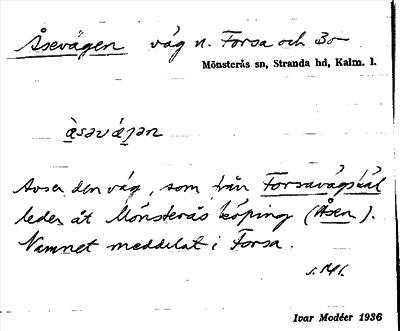 Åsevägen väg n. Forsa och Bo
Mönsterås sn, Stranda hd, Kalm. l.
àsəvá̱jən
Avser den väg, som från Forsavägskäl
leder åt Mönsterås köping (Åsen).
Namnet meddelat i Forsa.
s. 141.
Ivar Modéer 1936